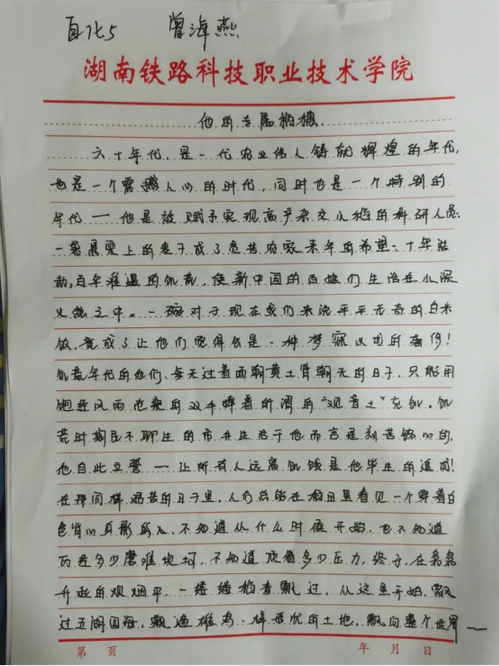 自化5 曾海燕
湖南铁路科技职业技术学院
他的专属稻穗
六十年代,是一代农业伟人铸就辉煌的年代,
也是一个震撼人心的时代,同时也是一个特别的
年代——他是被赋予实现高产杂交水稻的科研人员:
上的 成了 的希望:十年
百年难遇的饥荒,使新中国的百姓们生活在水深
火热之中。一碗对于现在我们来说平平无奇的白米
饭,竟成了让他们觉得会是一种梦寐以求的奢侈!
饥荒年代的他们,每天过着面朝黄土背朝天的日子,只能用
饱经风雨 的双手捧着 的“观音土”充饥。饥
荒时期民不聊生的市井生活于他而言是刻苦铭心的,
他自此立誓——让所有人远离饥饿是他毕生的追求!
在 的日子里,人们总能在稻田里看见一个穿着白
色背心身影 ,不知道从什么时候开始,也不知道
历经多少磨难坎坷,不知道顶着多少压力,终于,在袅袅
升起的炊烟中,一缕缕稻香飘过,从这里开始,飘
过五湖四海,飘遍 的土地,飘向整个世界——
第 页 年 月 日